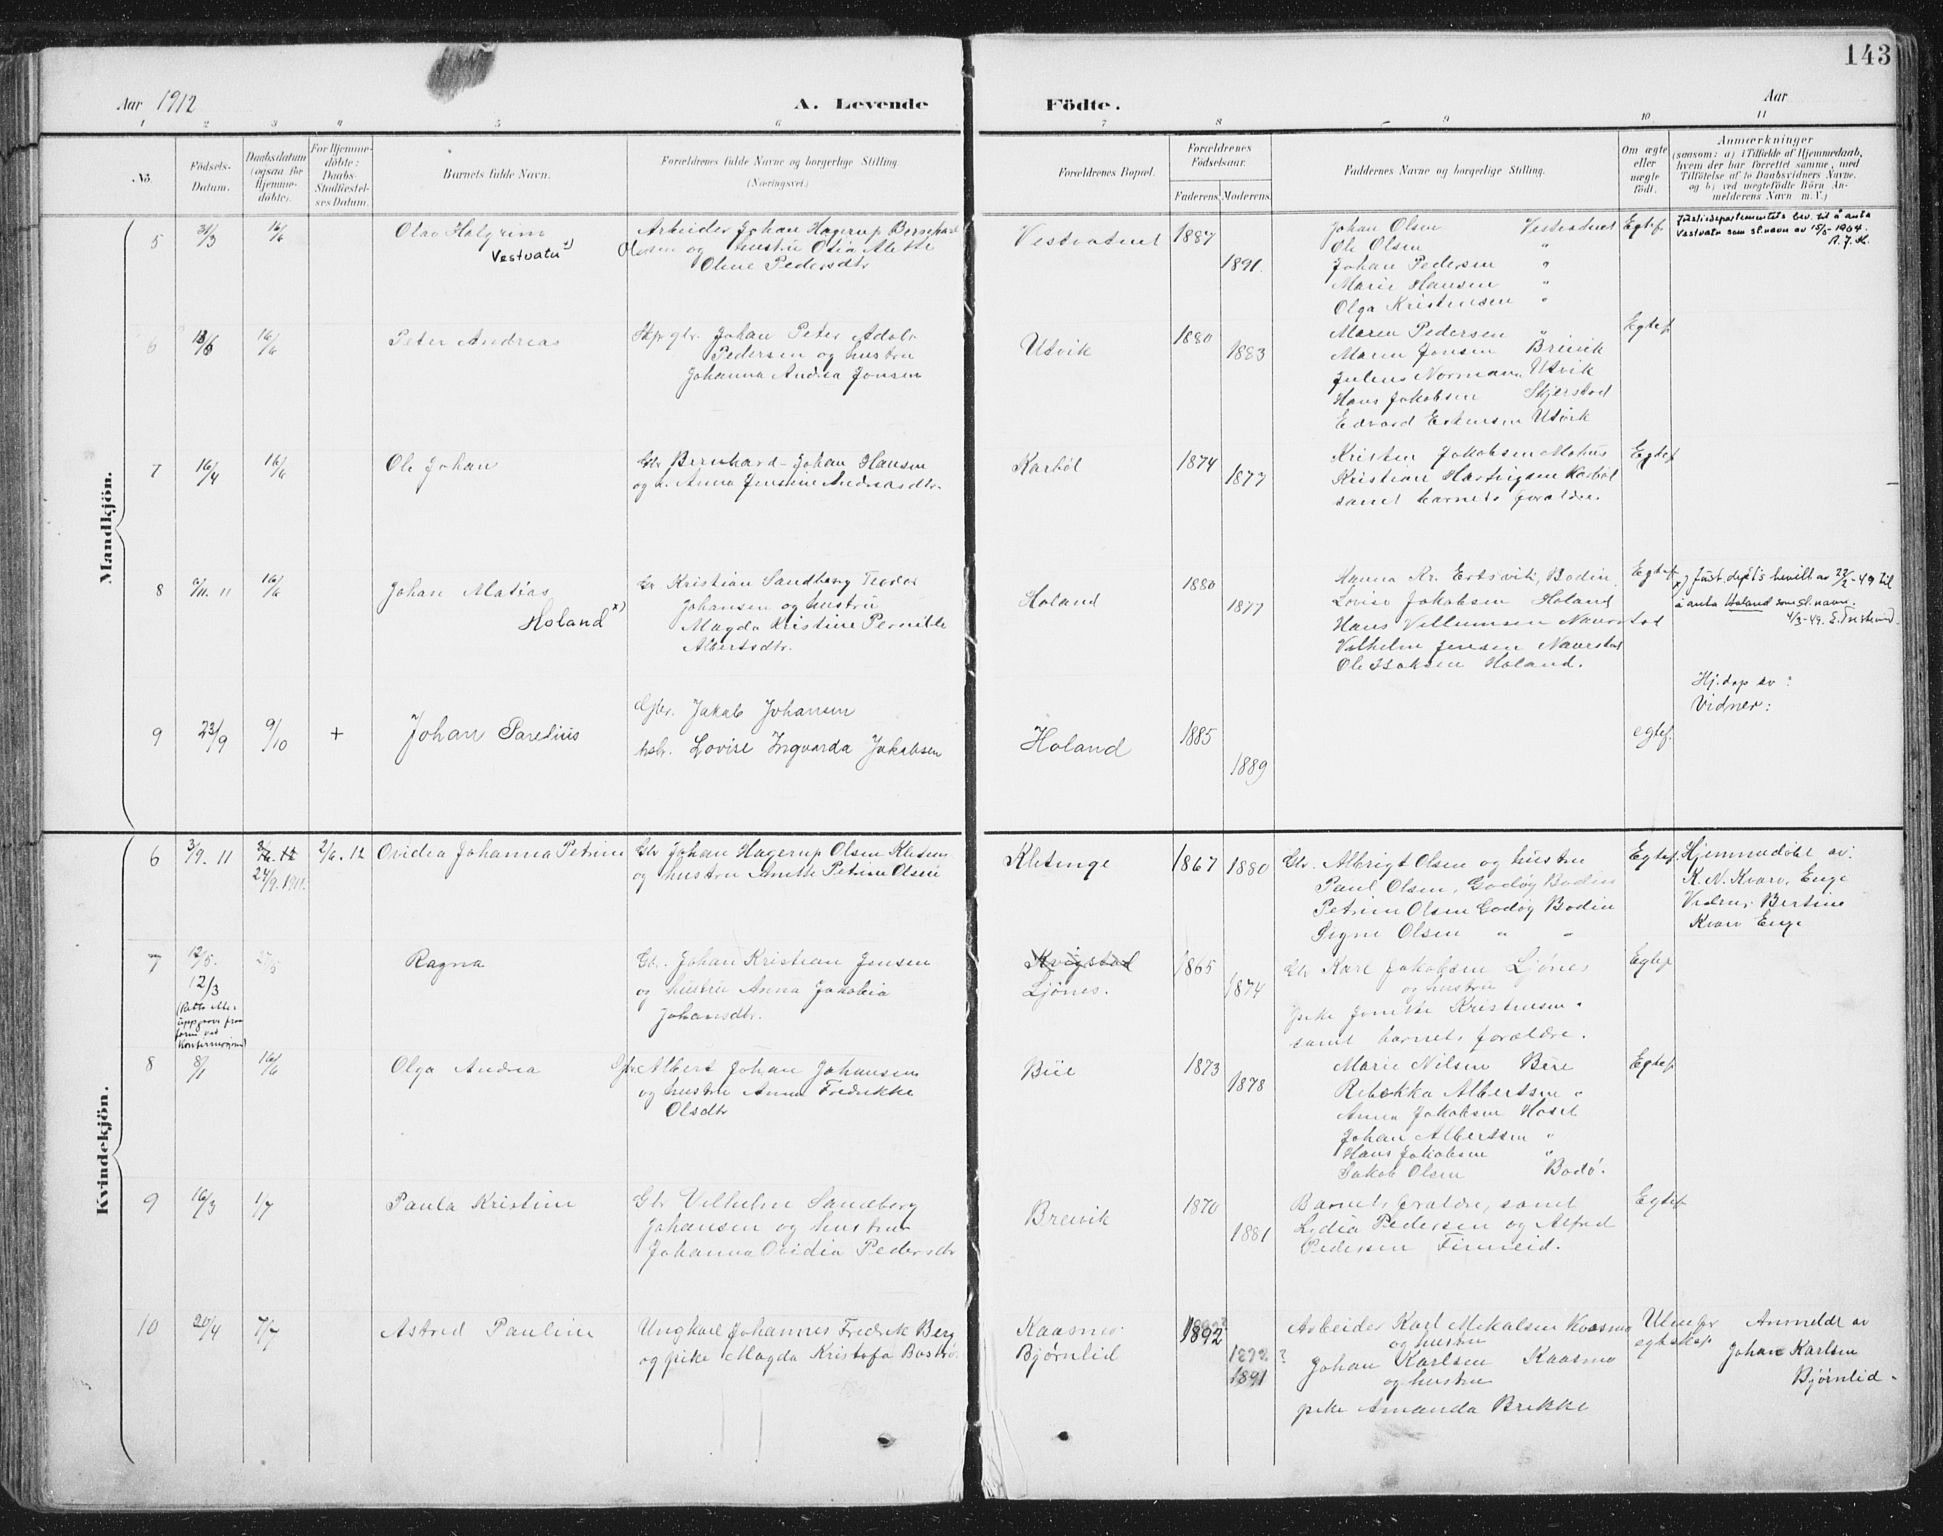 143
Aar 1912
A. Levende Födte.
Aar
1 2 3 4 5 6 7 8 9 10 11
No.
Födsels-Datum.
Daabsdatum (ogsaa for Hjemme-döbte).
For Hjemme-döbte: Daabs-Stadfæstel-ses Datum.
Barnets fulde Navn.
Forældrenes fulde Navne og borgerlige Stilling.
(Næringsvei.)
Forældrenes Bopæl.
Forældrenes Födselsaar.
Faderens. Moderens.
Faddernes Navne og borgerlige Stilling.
Om ægte eller uægte födt.
Anmærkninger
(saasom: a) i Tilfælde af Hjemmedaab, hvem der har forrettet samme, med Tilföielse af to Daabsvidners Navne, og b) ved uægtefödte Börn An-melderens Navn m. V.)
Mandkjön.
5 31/3 16/6 Olav Halgrim
Vestvatn 1)
Arbeider Johan Hagerup Bernhard
Olsen og hustru Osia Alette
Oline Pedersdtr
Vestvatnet 1887
1891.
Johan Olsen Vestvatnet
Ole Olsen "
Johan Pedersen "
Marie Hansen "
Olga Kristensen "
Egtef.
Justisdepartementets bev. til å anta
Vestvatn som sl.navn av 15/5-1964.
6 16/6 Peter Andreas
Johan Peter Adolv
Pedersen og hustru
Johanna Andrea Jonsen
Utvik 1880
1883
Maren Pedersen "
Maren Jonsen Breivik
Julius Normann Utvik
Hans Jakobsen Skjerstad
Edvard Utvik
Egtef
7 16/4 16/6 Ole Johan
Gbr Bernhard Johan Hansen
og h. Anna Jensine Andreasdtr.
Karbøl 1874
1877
Kristen Jakobsen Mohus
Kristian Hartvigsen Karbøl
samt barnets forældre.
Egtef
8 16/6 Johan Matias
Holand x)
Gbr. Kristian Sandberg Teodor
Johansen og hustru
Magda Kristine Pernille
Albertsdtr.
Holand 1880
1877
Hanna Kr. Bodin
Lovise Jakobsen Holand
Hans Villumsen Naurstad
Vilhelm Jensen Naurstad
Ole Isaksen Holand.
Egtef
x) Just.dept's bevilt av 22/2-49 til
å anta Holand som sl. navn.
4/3-49.
9 23/9 9/10 + Johan Parelius
Gbr. Jakob Johansen
hsb. Lovise Ingvarda Jakobsen
Holand 1885
1889
egtef.
Hj.døp av:
Vidner:
Kvindekjön.
6 3/9. 11 24/9.1911. 2/6. 12 Ovidia Johanna Petrine
Gbr Johan Hagerup Olsen
og hustru Anette Petrine Olsen
Kletinge 1867 1880
Gbr. Albrigt Olsen og hustru
Paul Olsen, Godøy Bodin
Petrine Olsen Godøy Bodin
Signe Olsen " "
Egtef.
Hjemmedøbt av:
K. N. Kvarv, Enge
Vidner: Bertine
Kvarv Enge
7 12/5.
12/3
27/5
Ragna
Gbr. Johan Kristian Jensen
og hustru Anna Jakobia
Johansdtr.
Kvigstad
Ljönes.
1865
1874
Gbr Karl Jakobsen Ljönes
og hustru
pike Jonette Kristensen "
samt barnets forældre.
Egtef
8 8/1 16/6 Olga Andrea
Gbr. Albert Johan Johansen
og hustru Anna Fredrikke
Olsdtr
1873
1878
Marie Nilsen
Rebekka Albertsen "
Anna Jakobsen
Johan Albertsen "
Hans Jakobsen "
Jakob Olsen Bodö.
Egtef
9 16/3 1/7 Paula Kristine
Gbr Vilhelm Sandberg
Johansen og hustru
Johanna Ovidia Pedersdtr
Breivik 1870
1881
Barnets forældre, samt
Lydia Pedersen og Alfred
Pedersen Finneid.
Egtef
10 20/4 7/7 Astrid Pauline
Ungkarl Johannes Fredrik Berg
og pike Magda Kristofa
Kaasmo.
Bjørnlid
1892
1892 ?
1891
Arbeider Karl Mikalsen Kaasmo
og hustru
Johan Karlsen Kaasmo
og hustru
pike Amanda Brekke
Utenfor
egteskap
Anmeldt av
Johan Karlsen
Bjørnlid.